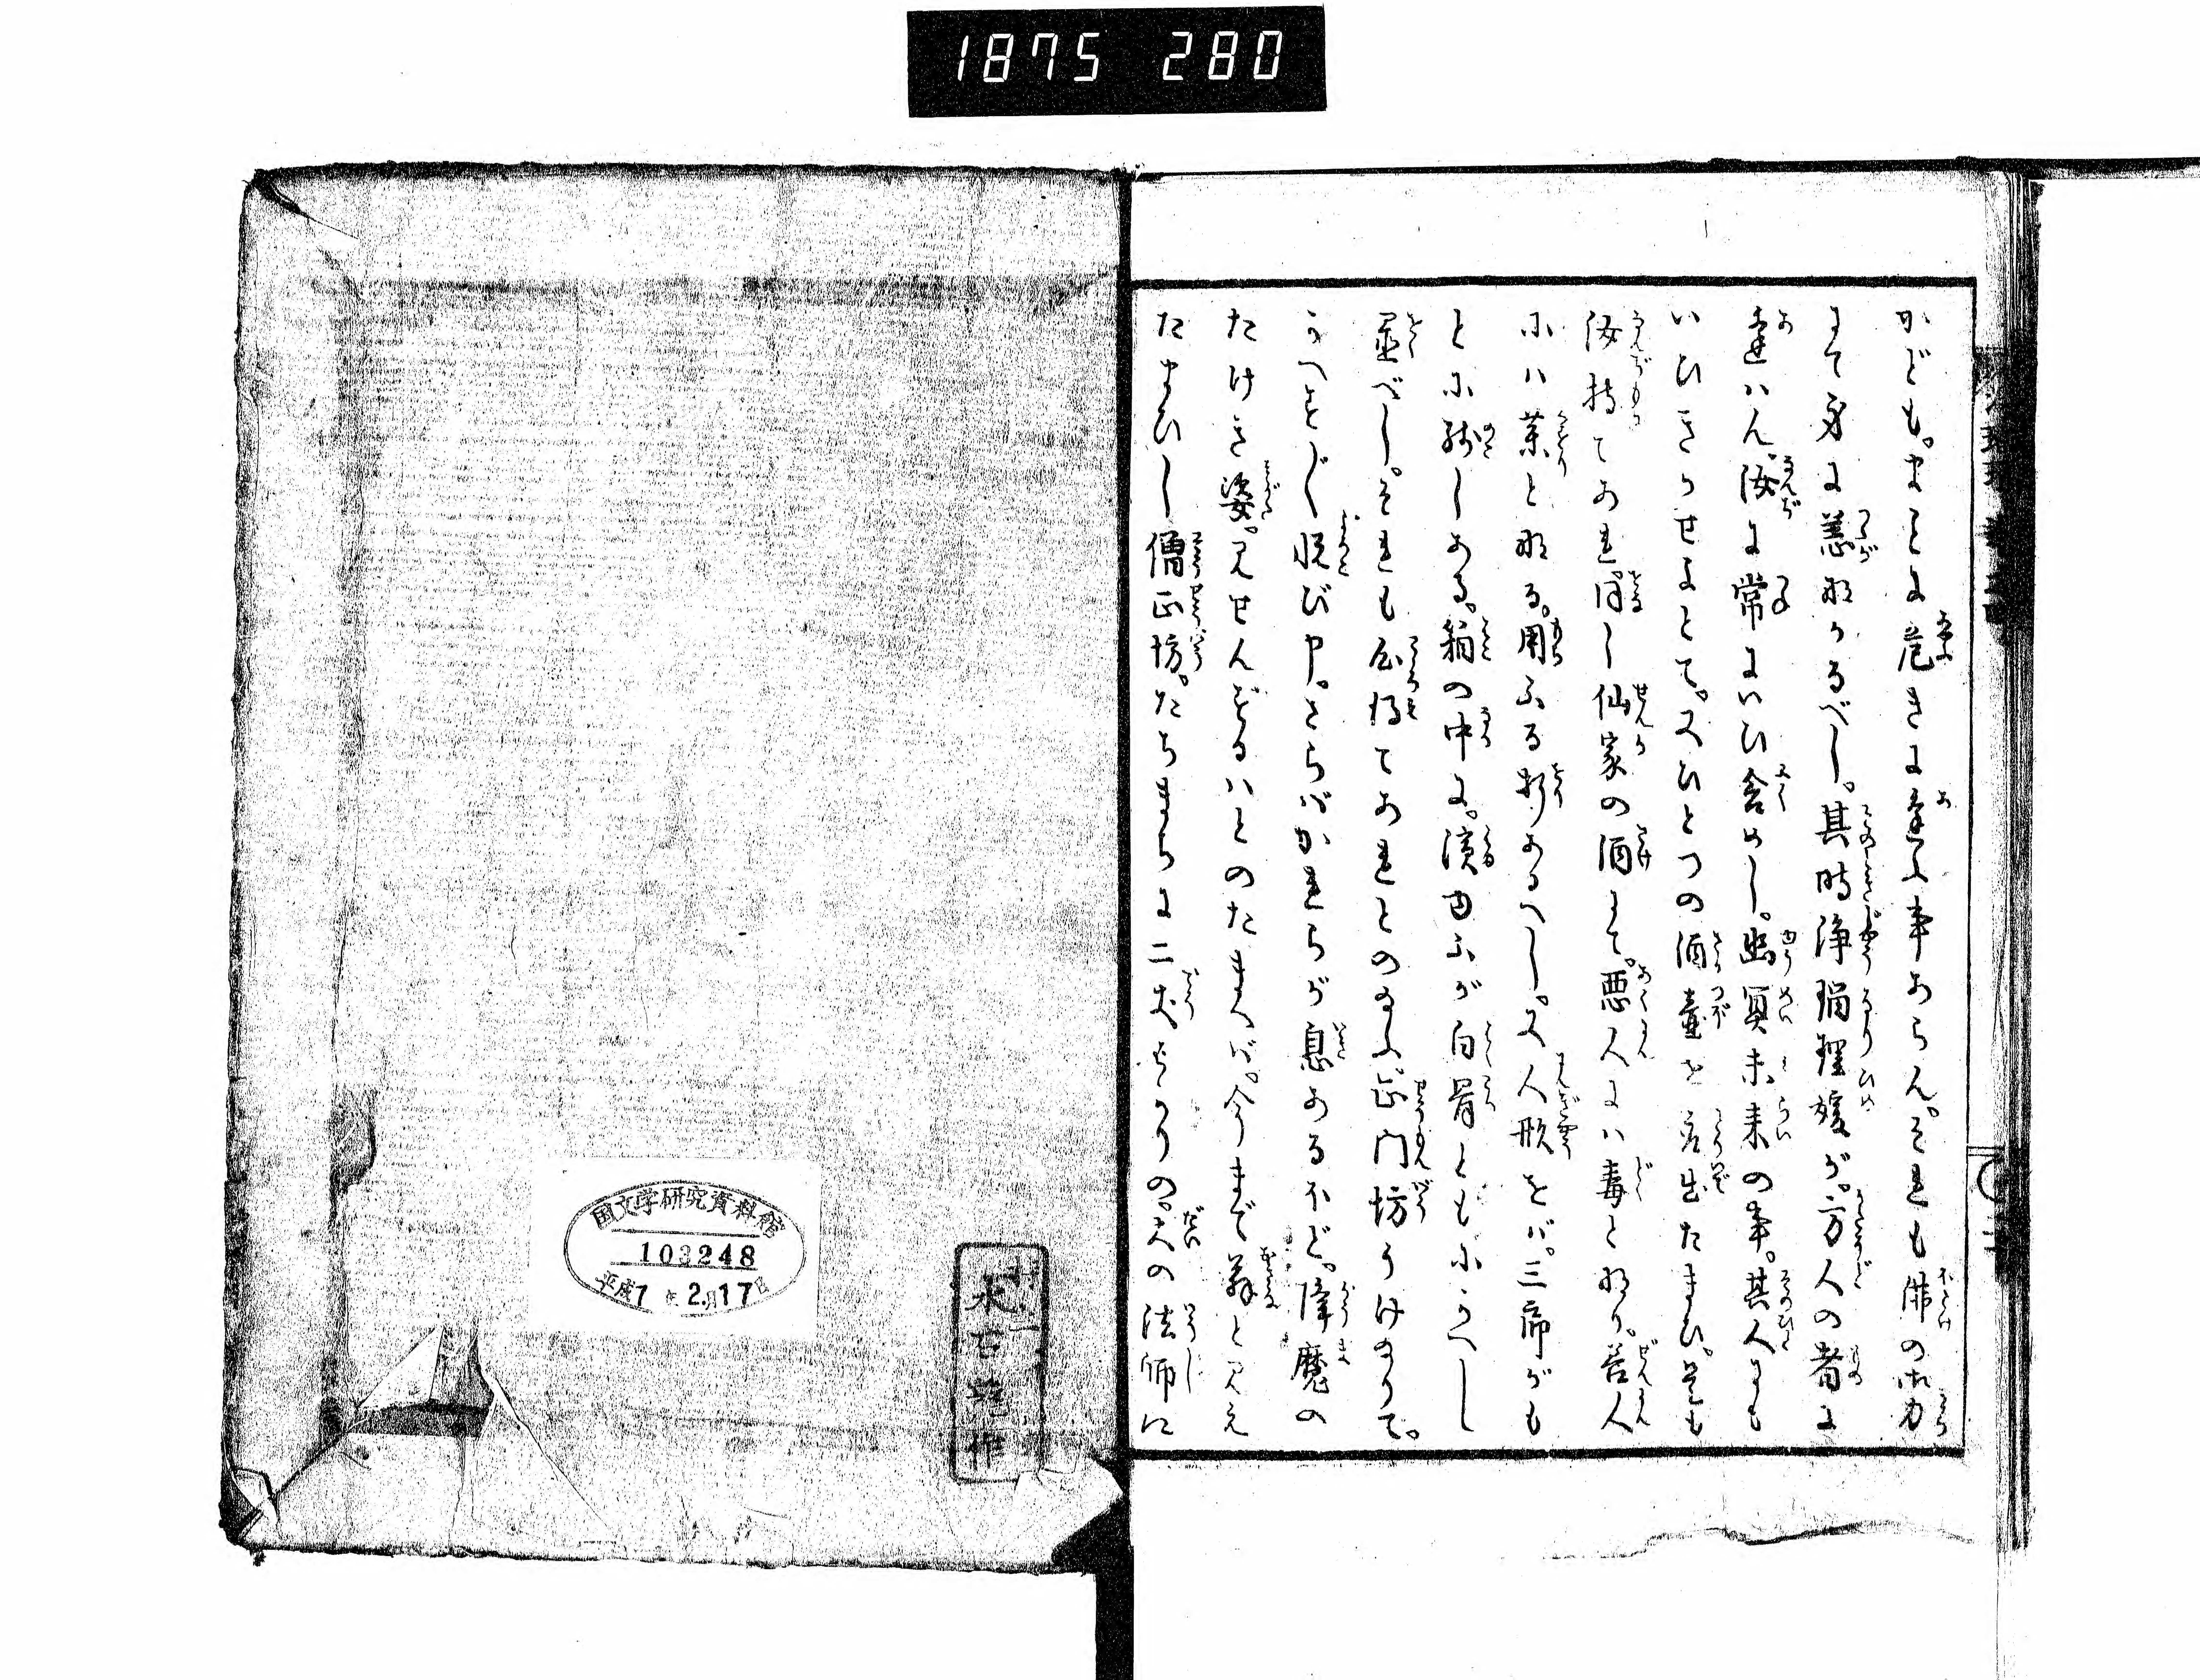 1875 280
かども。まことに危きに逢ふ事あらん。それも佛の御力
にて身に恙なかるべし。其時浄瑠璃媛が。方人の者に
逢はん。汝に常にいひ含めし。幽冥未来の事。其人にも
いひきかせよとて。又ひとつの酒壷を取出たまひ。是も
汝持てあれ。同し仙家の酒にて。悪人には毒となり。善人
には薬となる。用ふる折あるへし。又人形をば。三郎がも
とに残しある。箱の中に。濱ゆふが白骨ともにかへし
置べし。それも心得てあれとのたまふ。正門坊うけ給りて。
うへをじく悦び申。さらばかれらが息あるほど。降魔の
たけき姿。見せんずるはとのたまへば。今まで翁と見え
たまひし僧正坊。たちまちに二丈ばかりの。大の法師に
国文学研究資料館
103248
平成7年2月17日